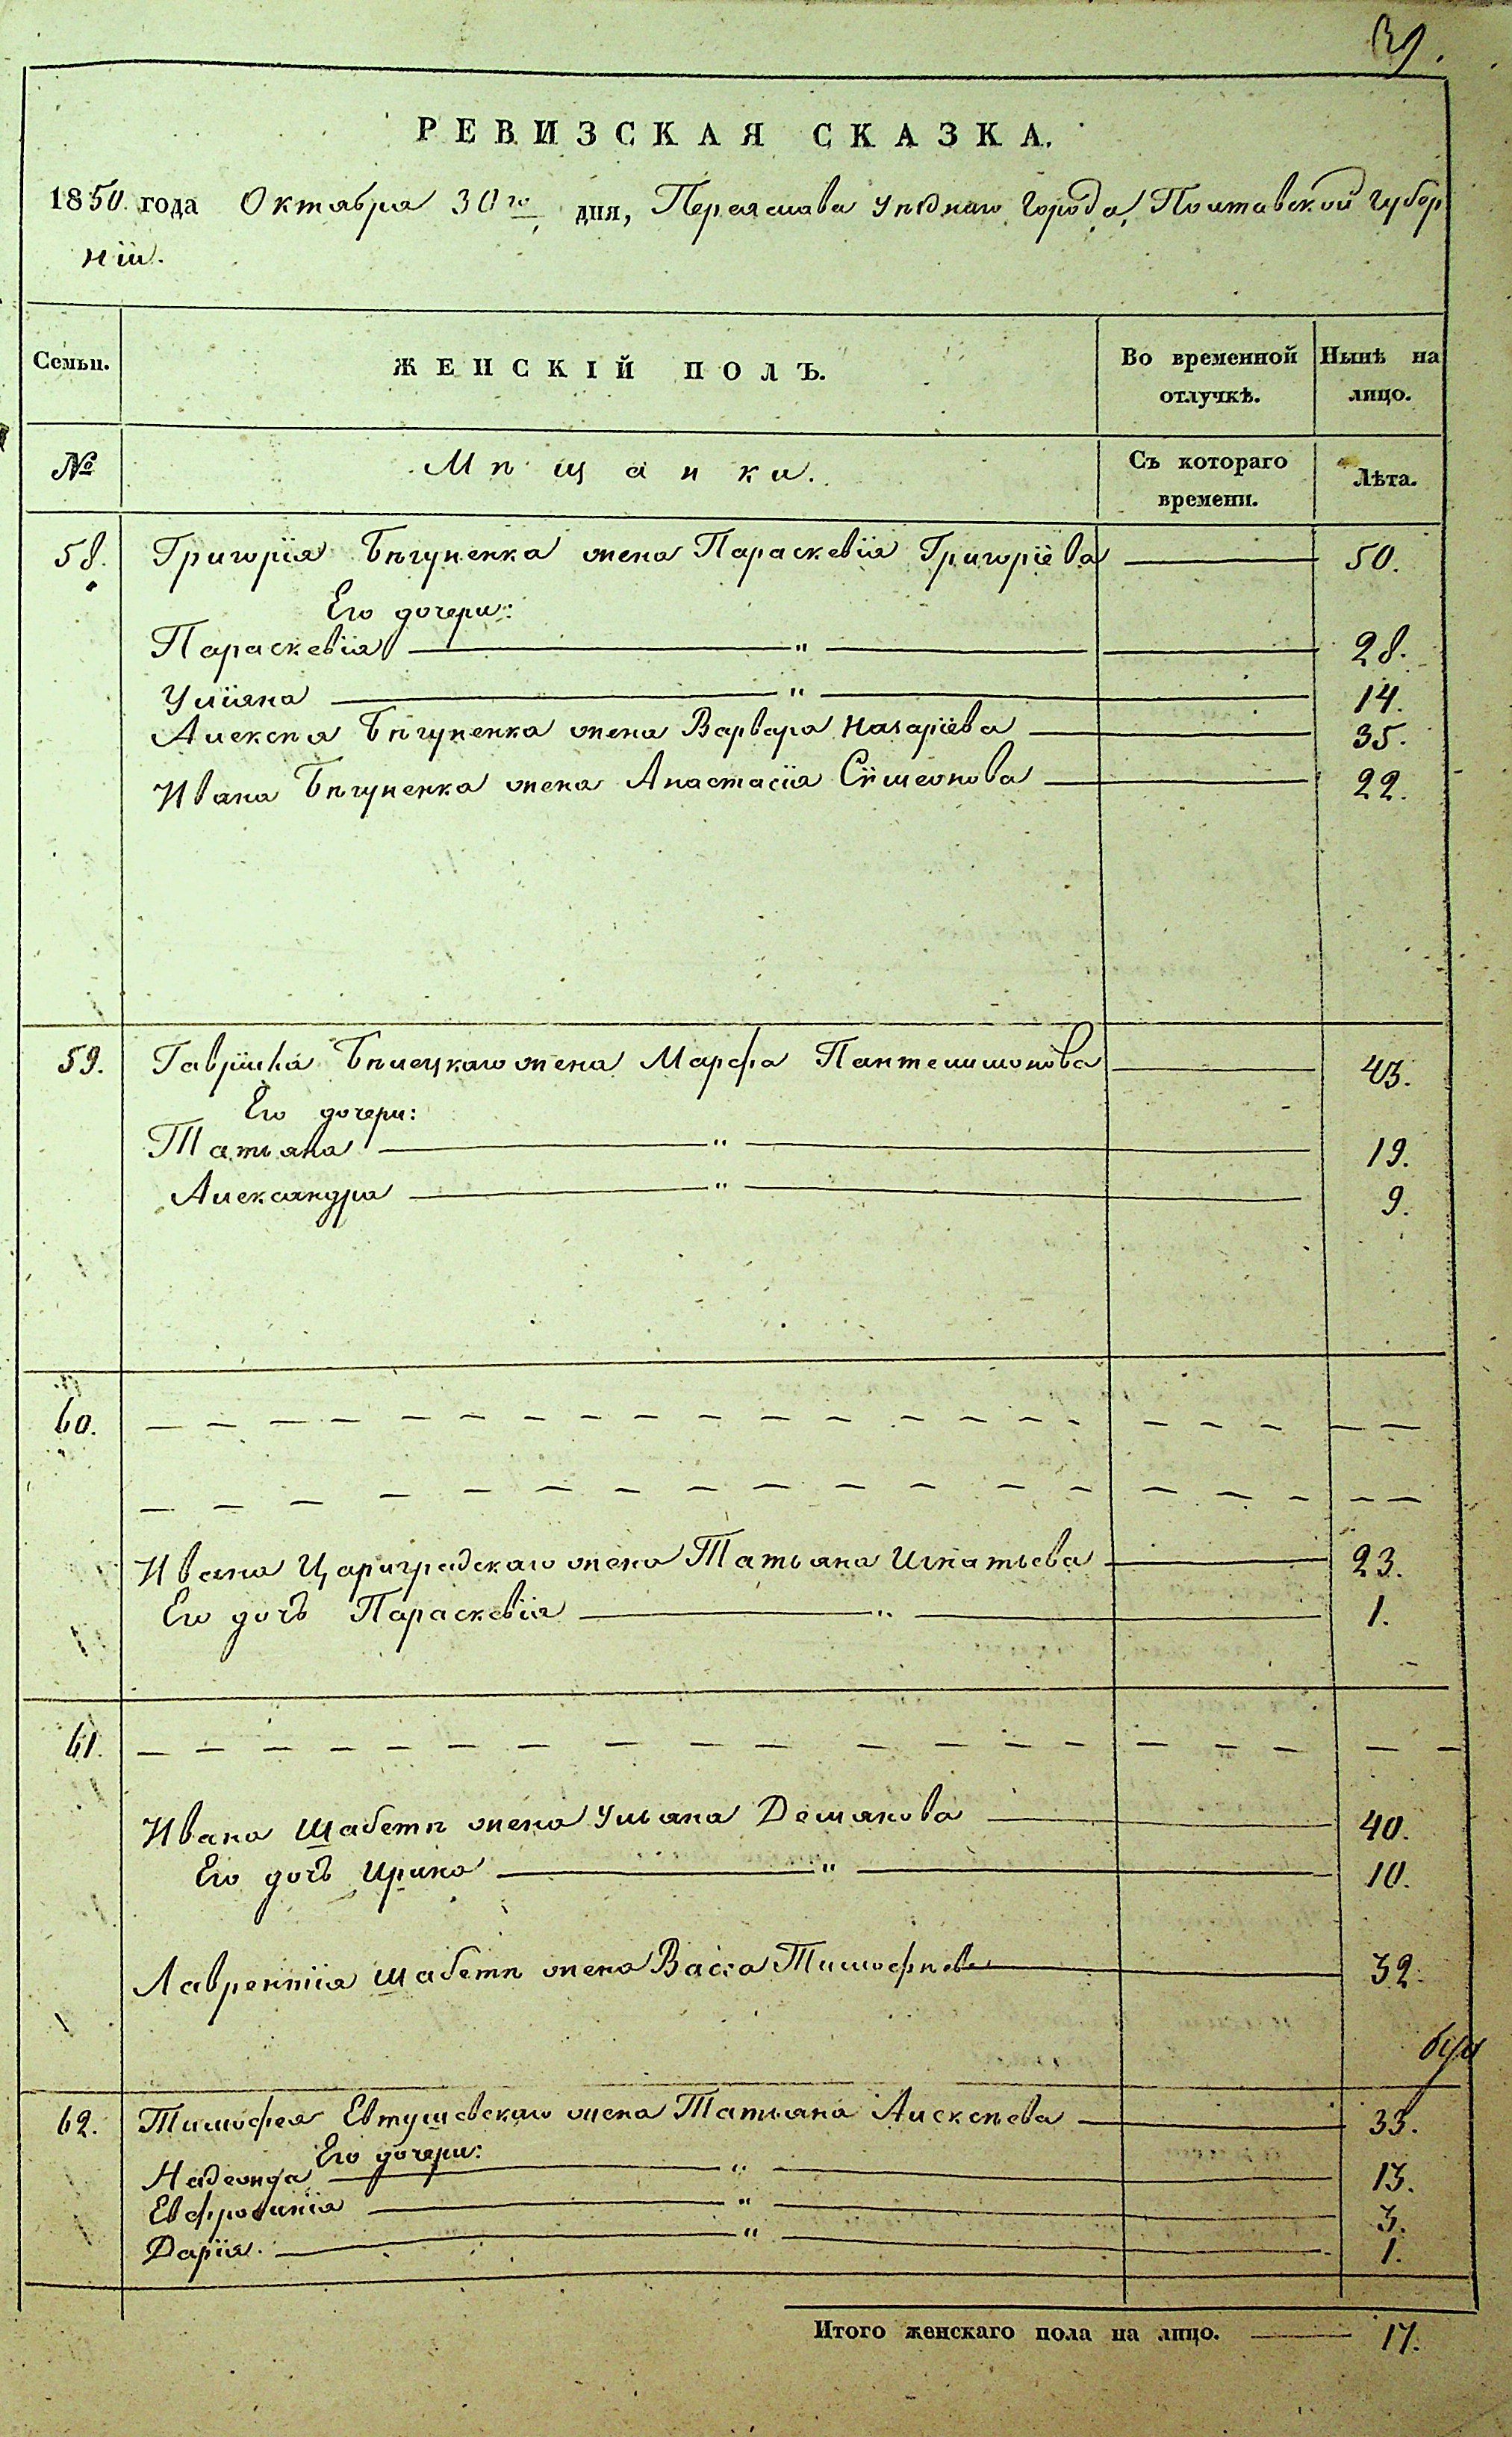 39.
РЕВИЗСКАЯ СКАЗКА.
1850 года Октября 30го дня, Переяслава уѣзднаго города, Полтавской губер
ніи.
Семьи. ЖЕНСКІЙ ПОЛЪ. Во временной отлучкѣ. Нынѣ на лицо.
№ Мѣщанки. Съ котораго времени. Лѣта.
58. Григорія Бѣгуненка жена Параскевія Григоріева — 50.
Его дочери:
Параскевія — " — 28.
Уліяна — " — 14.
Алексѣя Бѣгуненка жена Варвара Назаріева — 35.
Ивана Бѣгуненка жена Анастасія Симеонова — 22.
59. Гавріила Бѣлецкаго жена Марфа Пантелимонова — 43.
Его дочери:
Татьяна — " — 19.
Александра — " — 9.
60. — — — — — — — — — —
— — — — — — — — — —
Ивана Цариградскаго жена Татьяна Игнатьева — 23.
Его дочь Параскевія — " — 1.
61. — — — — — — — — — —
Ивана Шабетѣ жена Ульяна Демянова — 40.
Его дочь Ирина — " — 10.
Лаврентія Шабетѣ жена Васса Тимофѣева — 32.
62. Тимофея Евтушевскаго жена Татьяна Алексѣева — 33.
Его дочери:
Надежда — " — 13.
Евфросинія — " — 3.
Дарія — " — 1.
Итого женскаго пола на лицо. — 17.